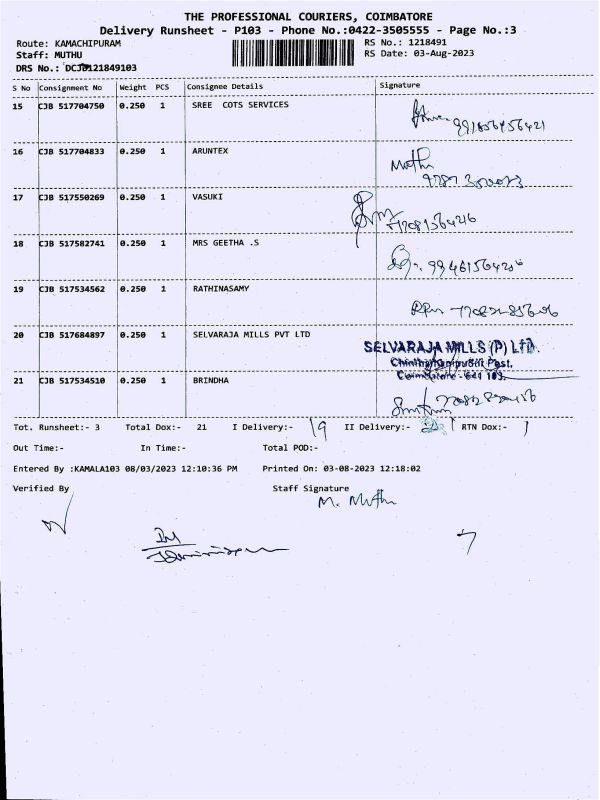 THE PROFESSIONAL COURIERS, COIMBATORE
Delivery Runsheet - P103 - Phone No.:0422-3505555 - Page No.:3
Route: KAMACHIPURAM
RS No.: 1218491
Staff: MUTHU
RS Date: 03-Aug-2023
DRS No.: DCJB121849103
S No Consignment No Weight PCS Consignee Details Signature
15 CJB 517704750 0.250 1 SREE COTS SERVICES
16 CJB 517704833 0.250 1 ARUNTEX Muthu
17 CJB 517550269 0.250 1 VASUKI
18 CJB 517582741 0.250 1 MRS GEETHA .S
19 CJB 517534562 0.250 1 RATHINASAMY
20 CJB 517684897 0.250 1 SELVARAJA MILLS PVT LTD
SELVARAJA MILLS (P) LTD.
Post,
Coimbatore - 641 103.
21 CJB 517534510 0.250 1 BRINDHA
Tot. Runsheet:- 3 Total Dox:- 21 I Delivery:- 19 II Delivery:- RTN Dox:-
Out Time:- In Time:- Total POD:-
Entered By :KAMALA103 08/03/2023 12:10:36 PM Printed On: 03-08-2023 12:18:02
Verified By Staff Signature
M. Muthu